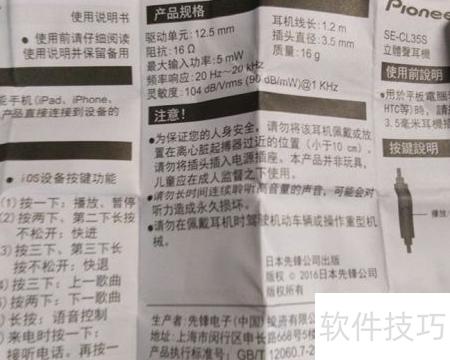 使用说明书
●使用前请仔细阅读
使用说明并保留备用
能手机(iPad、iPhone、
产品直接连接到设备的
● iOS设备按键功能
(1)按一下：播放、暂停
(2)按两下、第二下长按
不松开：快进
(3)按三下、第三下长
按不松开：快退
(4)按三下：上一歌曲
(5)按两下：下一歌曲
长按：语音控制
来电时按一下：
接听电话，再按一
产品规格
驱动单元：12.5 mm
阻抗：16 Ω
最大输入功率：5 mW
频率响应：20 Hz～20 kHz
灵敏度：104 dB/Vrms (90 dB/mW)@1 KHz
耳机线长：1.2 m
插头直径：3.5 mm
质量：16 g
注意！
●为保证您的人身安全，请勿将该耳机佩戴或放
置在离心脏起搏器过近的位置（小于10 cm）。
●请勿将插头插入电源插座。本产品并非玩具，
儿童应在成人监督之下使用。
●请勿长时间连续聆听高音量的声音，可能会对
听力造成永久损坏。
●请勿在佩戴耳机时驾驶机动车辆或操作重型机
械。
日本先锋公司出版
版权 © 2016日本先锋公司
版权所有
生产者：先锋电子(中国)投资有限公
地址：上海市闵行区申长路668号5楼
产品执行标准号：GB/T 12060.7-2
Pioneer
SE-CL35S
立體聲耳機
使用前說明
●用於平板電腦
HTC等)時，請
3.5毫米耳機插
按鍵說明
播放
软件技巧